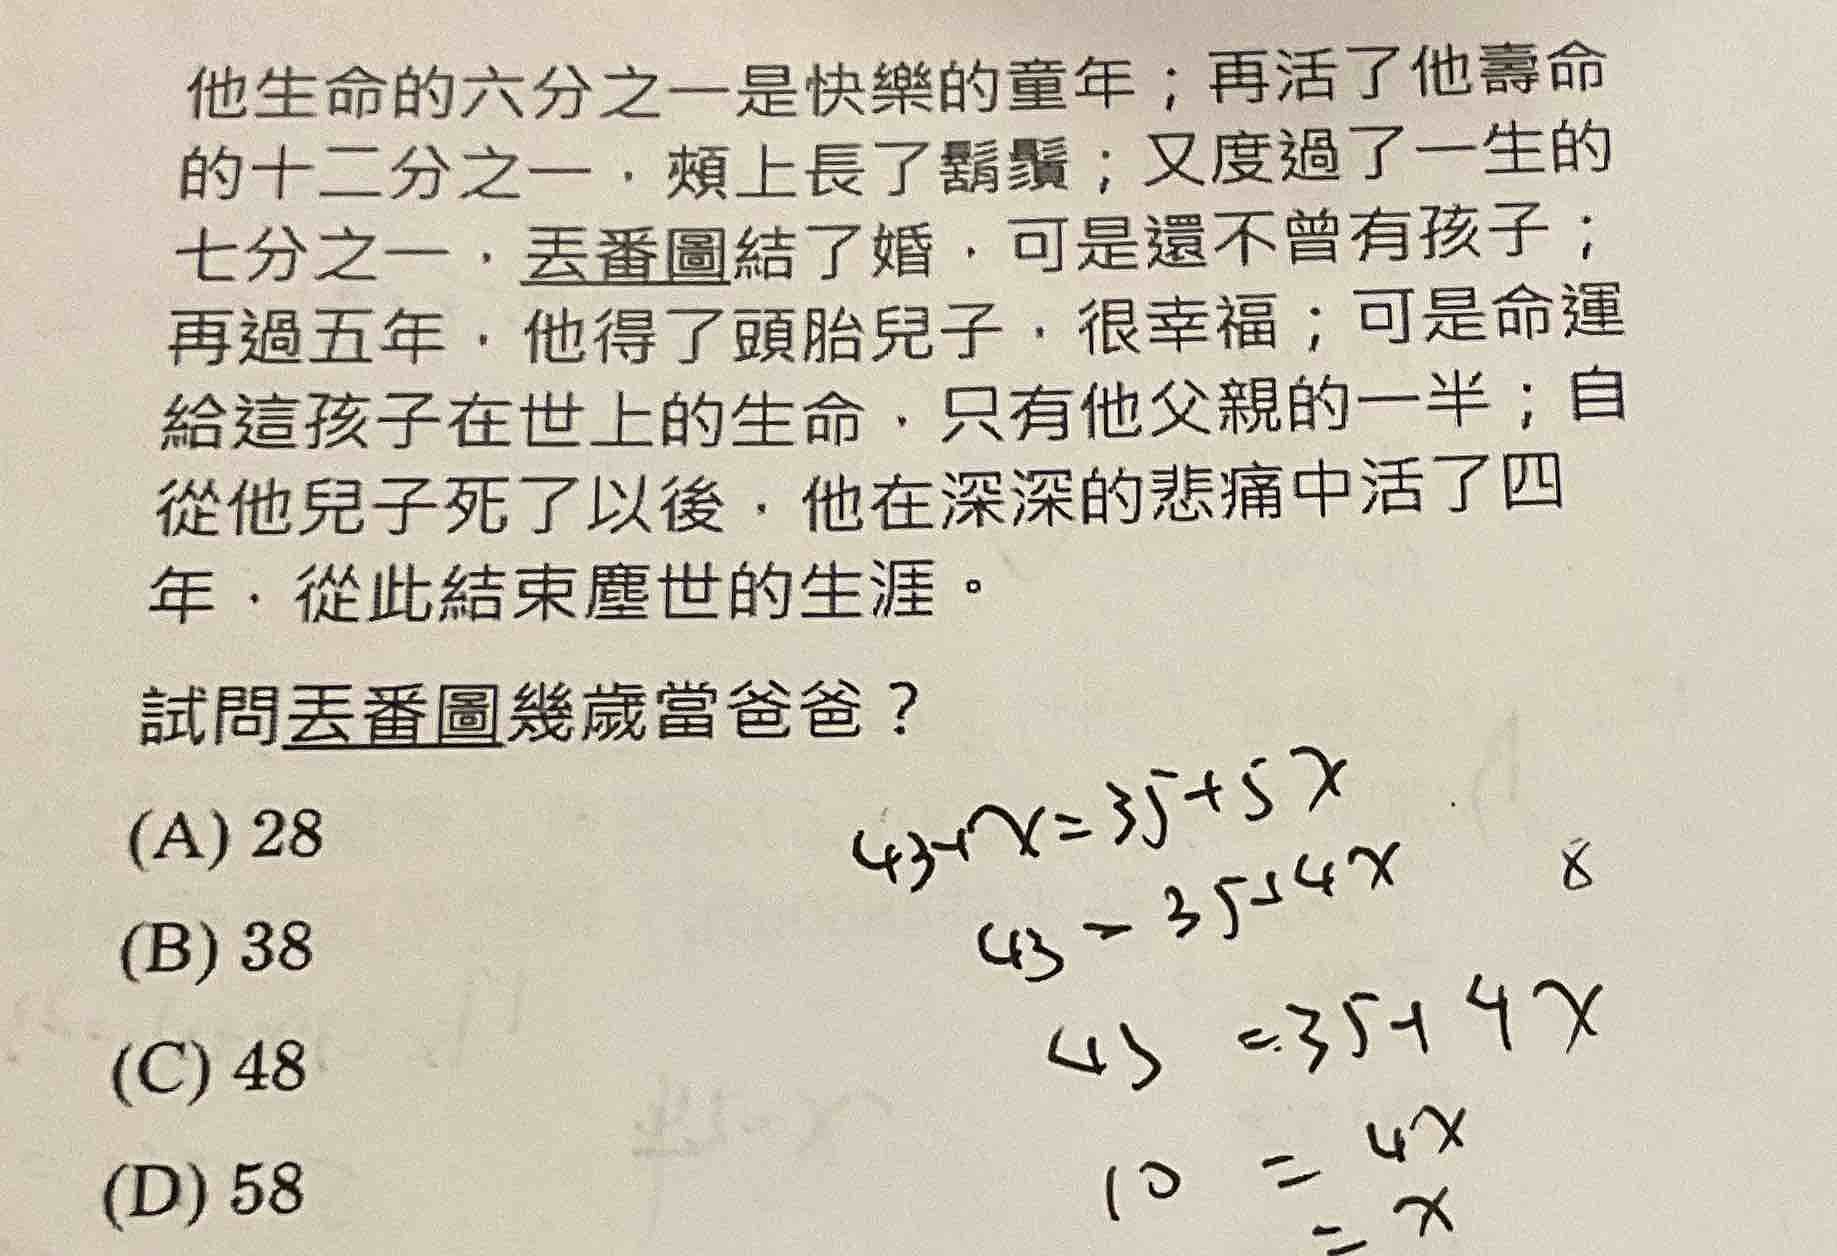 他生命的六分之一是快樂的童年；再活了他壽命
的十二分之一，頰上長了鬍鬚；又度過了一生的
七分之一，丟番圖結了婚，可是還不曾有孩子；
再過五年，他得了頭胎兒子，很幸福；可是命運
給這孩子在世上的生命，只有他父親的一半；自
從他兒子死了以後，他在深深的悲痛中活了四
年，從此結束塵世的生涯。
試問丟番圖幾歲當爸爸？
(A) 28
(B) 38
(C) 48
(D) 58
43+x=35+5x
43-35+4x
8
43 =35+4x
10 = 4x
= x